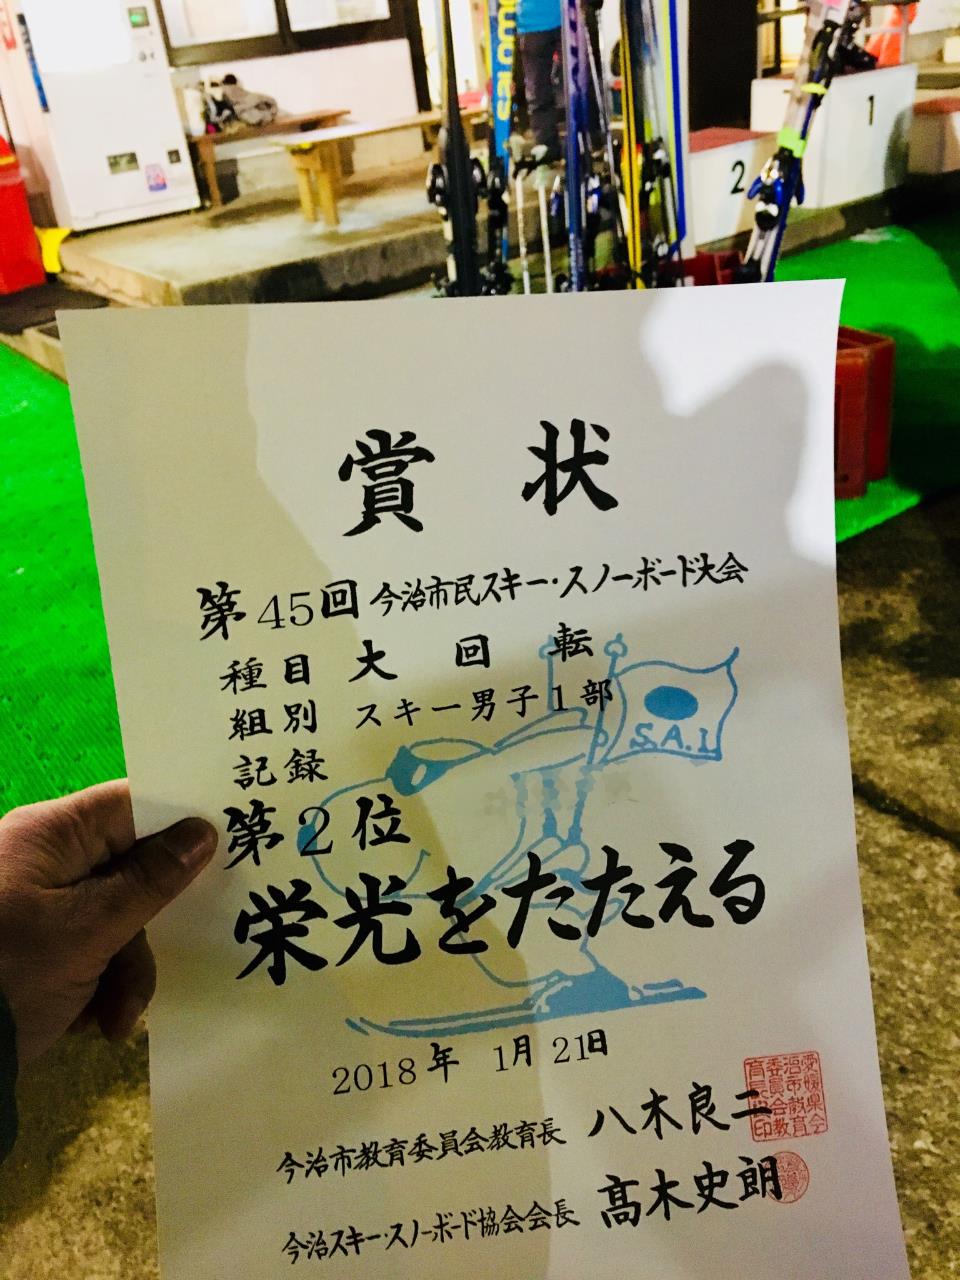 salomon
1
2
賞状
第45回 今治市民スキー・スノーボード大会
種目 大回転
組別 スキー男子1部
記録
S.A.I.
第2位
栄光をたたえる
2018年 1月21日
今治市教育委員会教育長 八木良二
今治スキー・スノーボード協会会長 髙木史朗